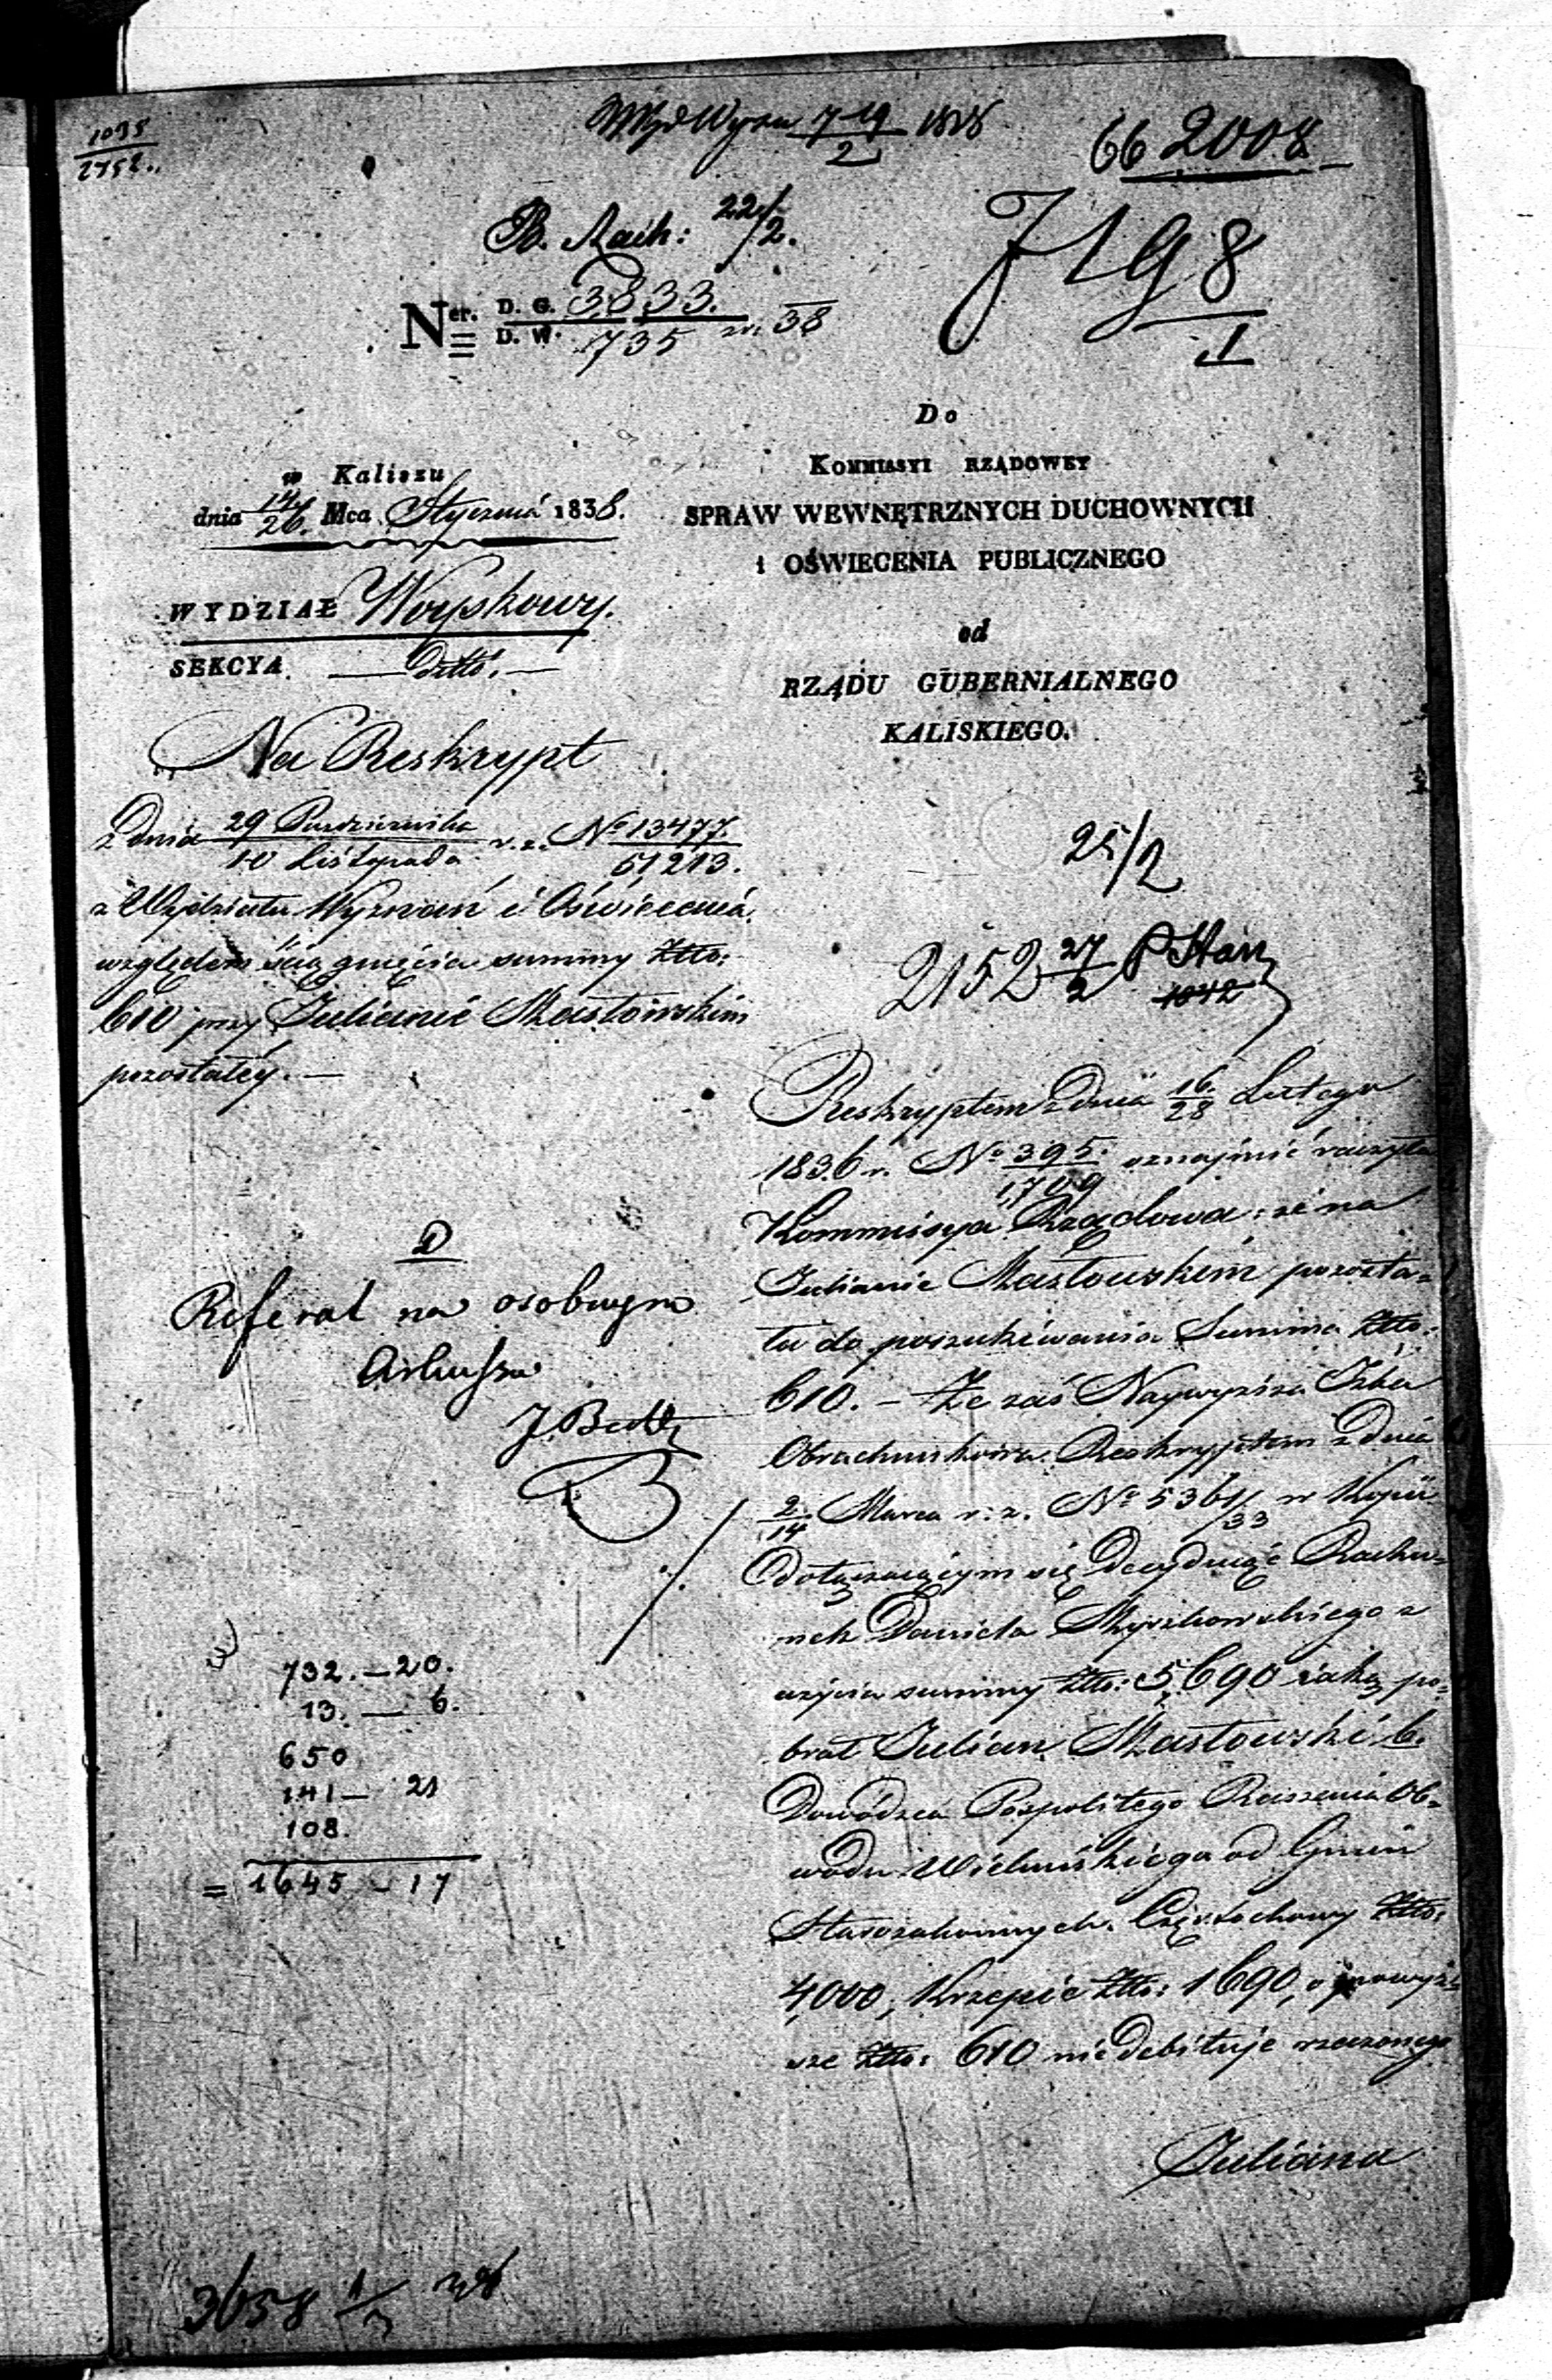 1095
2752..
7 19/2 1838
66 2008
B. Rach: 22/2.
7198
1
Ner. D. G. 3833.
D. W. 735 38
Do
KOMMISSYI RZĄDOWEY
SPRAW WEWNĘTRZNYCH DUCHOWNYCH
i OŚWIECENIA PUBLICZNEGO
od
RZĄDU GUBERNIALNEGO
KALISKIEGO.
w Kaliszu
dnia 14/26. Mca Stycznia 1838.
WYDZIAŁ Woyskowy.
SEKCYA — Ditto. —
Na Reskrypt
z dnia 29 Października r. z. No 13477.
10 Listopada 51,213.
z Wydziału Wyznań i Oświecenia
względem ściągnięcia summy Złło:
610 przy Julianie Masłowskim
pozostałéy. —
25/2
2152 27/2
1042
D
Referat na osobnym
Arkuszu
732. — 20.
13. — 6.
650
141 — 21
108.
= 1645 — 17
Reskryptem z dnia 16./28 Lutego
1836 r. No 395. oznajmić raczyła
1,709
Kommissya Rządowa: że na
Julianie Masłowskim pozosta=
ła do poszukiwania Summa Złło:
610. — Że zaś Naywyższa Izba
Obrachunkowa Reskryptem z dnia
2/14 Marca r: z. No 5361/33 w Kopii
dołączającym się decydując Rachu=
nek Daniela Myszkowskiego z
użycia summy Złło: 5,690 iaką po=
brał Julian Masłowski b.
Dowódzca Pospolitego Ruszenia Ob=
wodu Wieluńskiego od Gmin
Starozakonnych Częstochowy Złło:
4,000, Krzepic Złło: 1690, o powyż=
sze Złło: 610 nie debituje rzeczonego
Juliana
3658 1/3